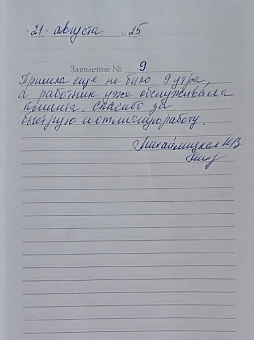 21 августа 25
Заявление № 9
Пришла еще не было 9 утра,
а работник уже обслуживала
клиента. Спасибо за
быструю и отличную работу.